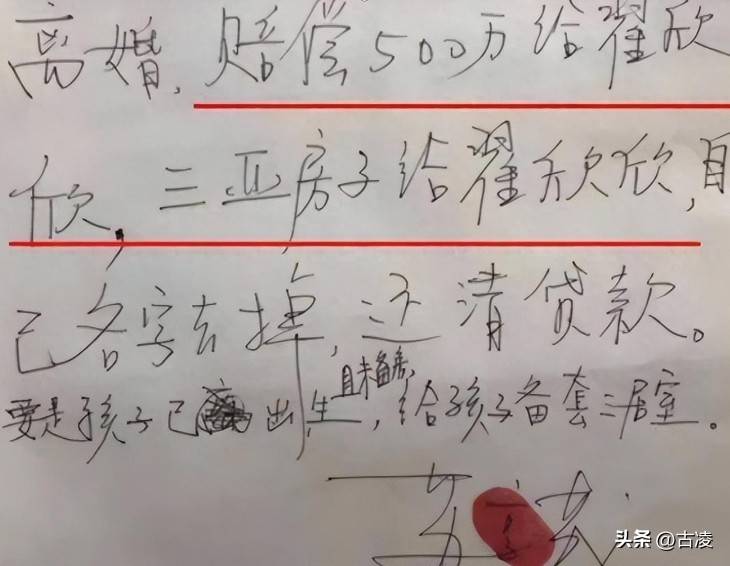 离婚，赔偿500万给翟欣
欣，三亚房子给翟欣欣，自
己名字去掉，还清贷款。
且未备房，
要是孩子已出生，给孩子备套三居室。
头条 @古凌